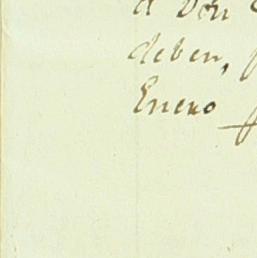 a Don
deben,
Enero